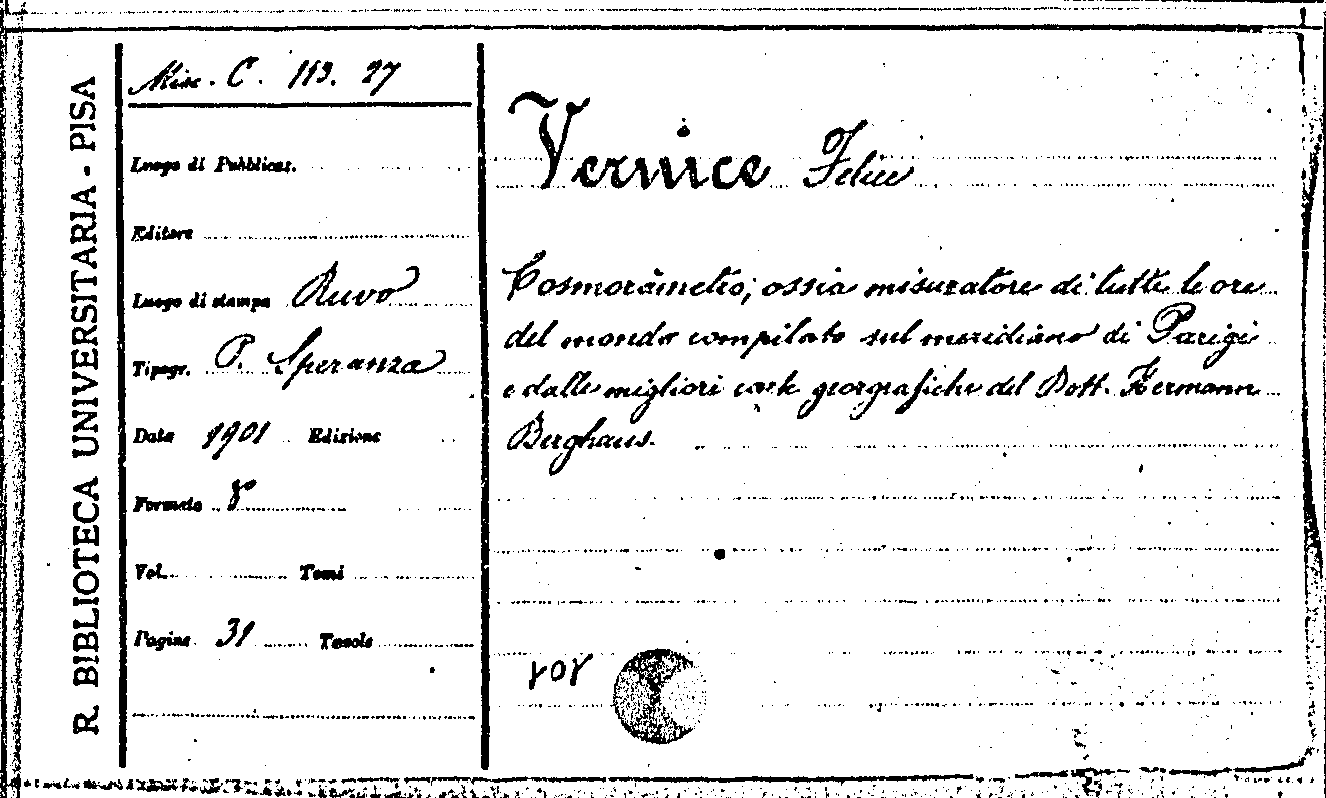 R. BIBLIOTECA UNIVERSITARIA - PISA
Misc. C. 113. 27
Luogo di Pubblicaz.
Editore
Luogo di stampa Ruvo
Tipogr. P. Speranza
Data 1901 Edizione
Formato 8°
Vol. Tomi
Pagine 31 Tavole
Vernice Felice
Cosmoràmetro, ossia misuratore di tutte le ore
del mondo compilato sul meridiano di Parigi
e dalle migliori carte georgrafiche del Dott. Hermann
Berghaus.